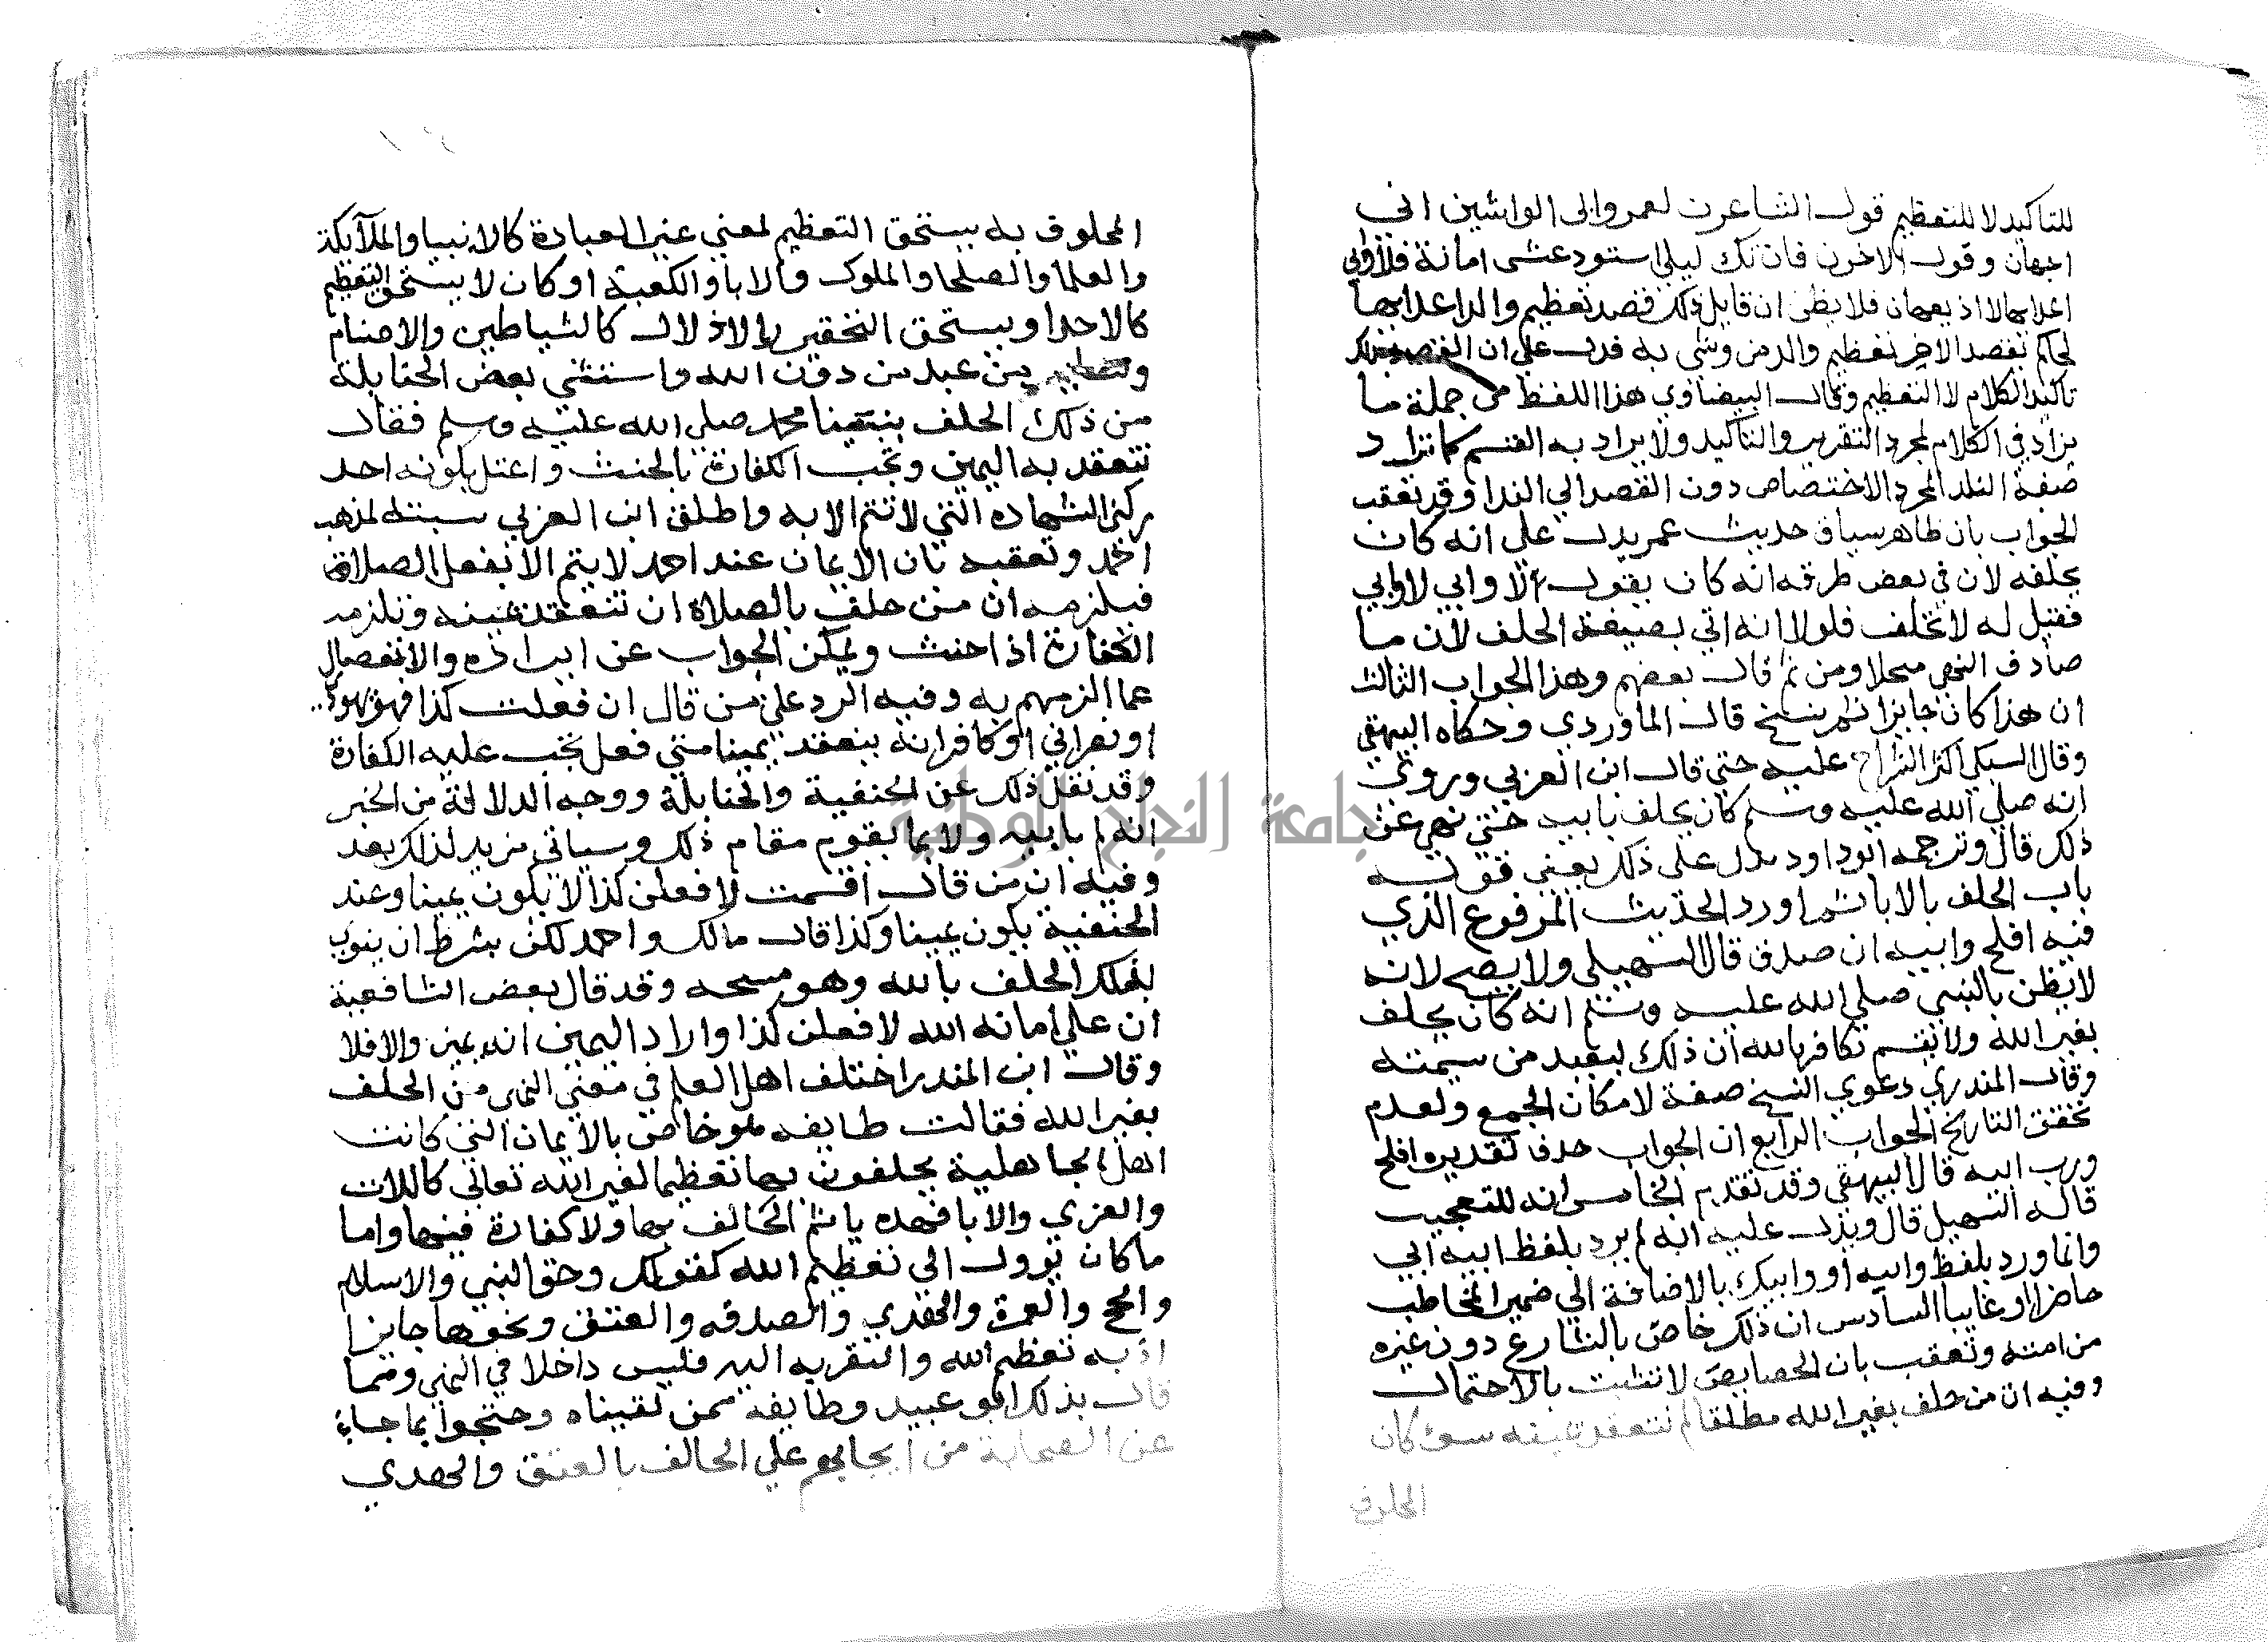 للتاكيد لا للتعظيم قول الشاعر لعمر وابي الواشين اني
احبها وقول الاخر فان تك ليلي استودعتني امانة فلا وابي
اعدايها لا اذيعها فلا يظن ان قايل ذلك قصد تعظيم والد اعدايها
كما لم يقصد الاخر تعظيم والد من وشي به فدل علي ان القصد بذلك
تاكيد الكلام لا التعظيم وقال البيضاوي هذا اللفظ من جملة ما
يزاد في الكلام لمجرد التقرير والتاكيد ولا يراد به القسم كما تزاد
صيغة الندا لمجرد الاختصاص دون القصد الي الندا وقد تعقب
الجواب بان ظاهر سياق حديث عمر يدل علي انه كان
يحلفه لان في بعض طرقه انه كان يقول لا وابي لا وابي
فقيل له لا تحلف فلولا انه اتي بصيغة الحلف لان ما
صادف النهي محلا ومن ثم قال بعضهم وهذا الجواب الثالث
ان هذا كان جايزا ثم نسخ قال الماوردي وحكاه البيهقي
وقال السبكي اكثر الشراح عليه حتي قال ابن العربي وروي
انه صلي الله عليه وسلم كان يحلف بابيه حتي نهي عن
ذلك قال وترجمه ابوداود يدل علي ذلك يعني قوله
باب الحلف بالابا ثم اورد الحديث المرفوع الذي
فيه افلح وابيه ان صدق قال السهيلي ولا يصح لانه
لا يظن بالنبي صلي الله عليه وسلم انه كان يحلف
بغير الله ولا يقسم بكافر بالله ان ذلك لبعيد من سيمته
وقال المنذري دعوي النسخ ضعيفة لامكان الجمع ولعدم
تحقق التاريخ الجواب الرابع ان الجواب حذف تقديره افلح
ورب ابيه قال البيهقي وقد تقدم الخامس انه للتعجيب
قاله السهيل قال ويدل عليه انه لم يرد بلفظ ابيه ابي
وانما ورد بلفظ وابيه او وابيك بالاضافة الي ضمير المخاطب
حاضرا او غايبا السادس ان ذلك خاص بالشارع دون غيره
من امته وتعقب بان الخصايص لا تثبت بالاحتمال
وفيه ان من حلف بغير الله مطلقا لم تنعقد يمينه سوا كان
المحلوف
المحلوف به يستحق التعظيم لمعني غير العبادة كالانبيا والملآيكة
والعلما والصلحا والملوك والابا والكعبة او كان لا يستحق التعظيم
كالاحاد او يستحق التحقير والاذلال كالشياطين والاصنام
من عبد من دون الله واستثني بعض الحنابلة
من ذلك الحلف بنبينا محمد صلي الله عليه وسلم فقال
تنعقد به اليمين وتجب الكفارة بالحنث واعتل بكونه احد
ركني الشهادة التي لا تتم الا به واطلق ابن العربي نسبته لمذهب
احمد وتعقبه بان الايمان عند احمد لا يتم الا بفعل الصلاة
فيلزمه ان من حلف بالصلاة ان تنعقد يمينه وتلزمه
الكفارة اذا حنث ويمكن الجواب عن ايراده والانفصال
عما الزمهم به وفيه الرد علي من قال ان فعلت كذا فهو يهودي
او نصراني او كافر انه ينعقد يمينا متي فعل تجب عليه الكفارة
وقد نقل ذلك عن الحنفية والحنابلة ووجه الدلالة من الخبر
انه لم يات به ولا بما يقوم مقام ذلك وسياتي مزيد لذلك بعد
وفيه ان من قال اقسمت لافعلن كذا لا يكون يمينا وعند
الحنفية يكون يمينا وكذا قال مالك واحمد لكن بشرط ان ينوي
بذلك الحلف بالله وهو متجه وقد قال بعض الشافعية
ان علي امانه الله لافعلن كذا واراد اليمين انه يمين والا فلا
وقال ابن المنذر اختلف اهل العلم في معني النهي من الحلف
بغير الله فقالت طايفه هو خاص بالايمان التي كانت
اهل الجاهلية يحلفون بها تعظيما لغير الله تعالي كاللات
والعزي والابا فهذه ياثم الحالف بها ولا كفارة فيها واما
ما كان يوول الي تعظيم الله كقولك وحق النبي والاسلام
والحج والعمرة والهدي والصدقه والعتق ونحوها جايزا
اذ به تعظيم الله والتقربه اليه فليس داخلا في النهي وممن
قال بذلك ابو عبيد وطايفه ممن لقيناه وحتجوا بما جاء
عن الصحابة من ايجابهم علي الحالف بالعتق والهدي
جامعة النجاح الوطنية